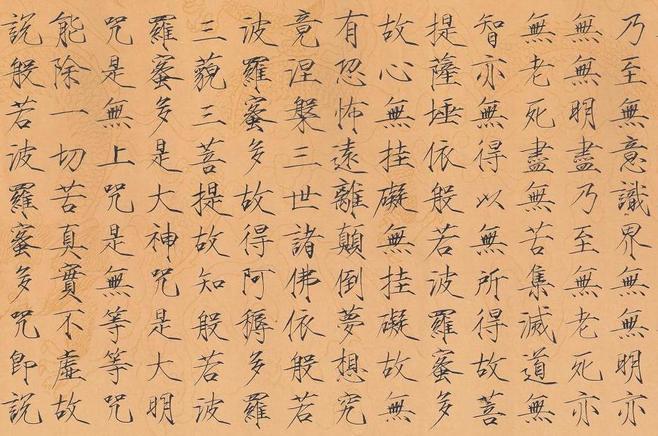 乃至無意識界無無明亦
無無明盡乃至無老死亦
無老死盡無苦集滅道無
智亦無得以無所得故菩
提薩埵依般若波羅蜜多
故心無挂礙無挂礙故無
有恐怖遠離顛倒夢想究
竟涅槃三世諸佛依般若
波羅蜜多故得阿耨多羅
三藐三菩提故知般若波
羅蜜多是大神咒是大明
咒是無上咒是無等等咒
能除一切苦真實不虛故
說般若波羅蜜多咒即說